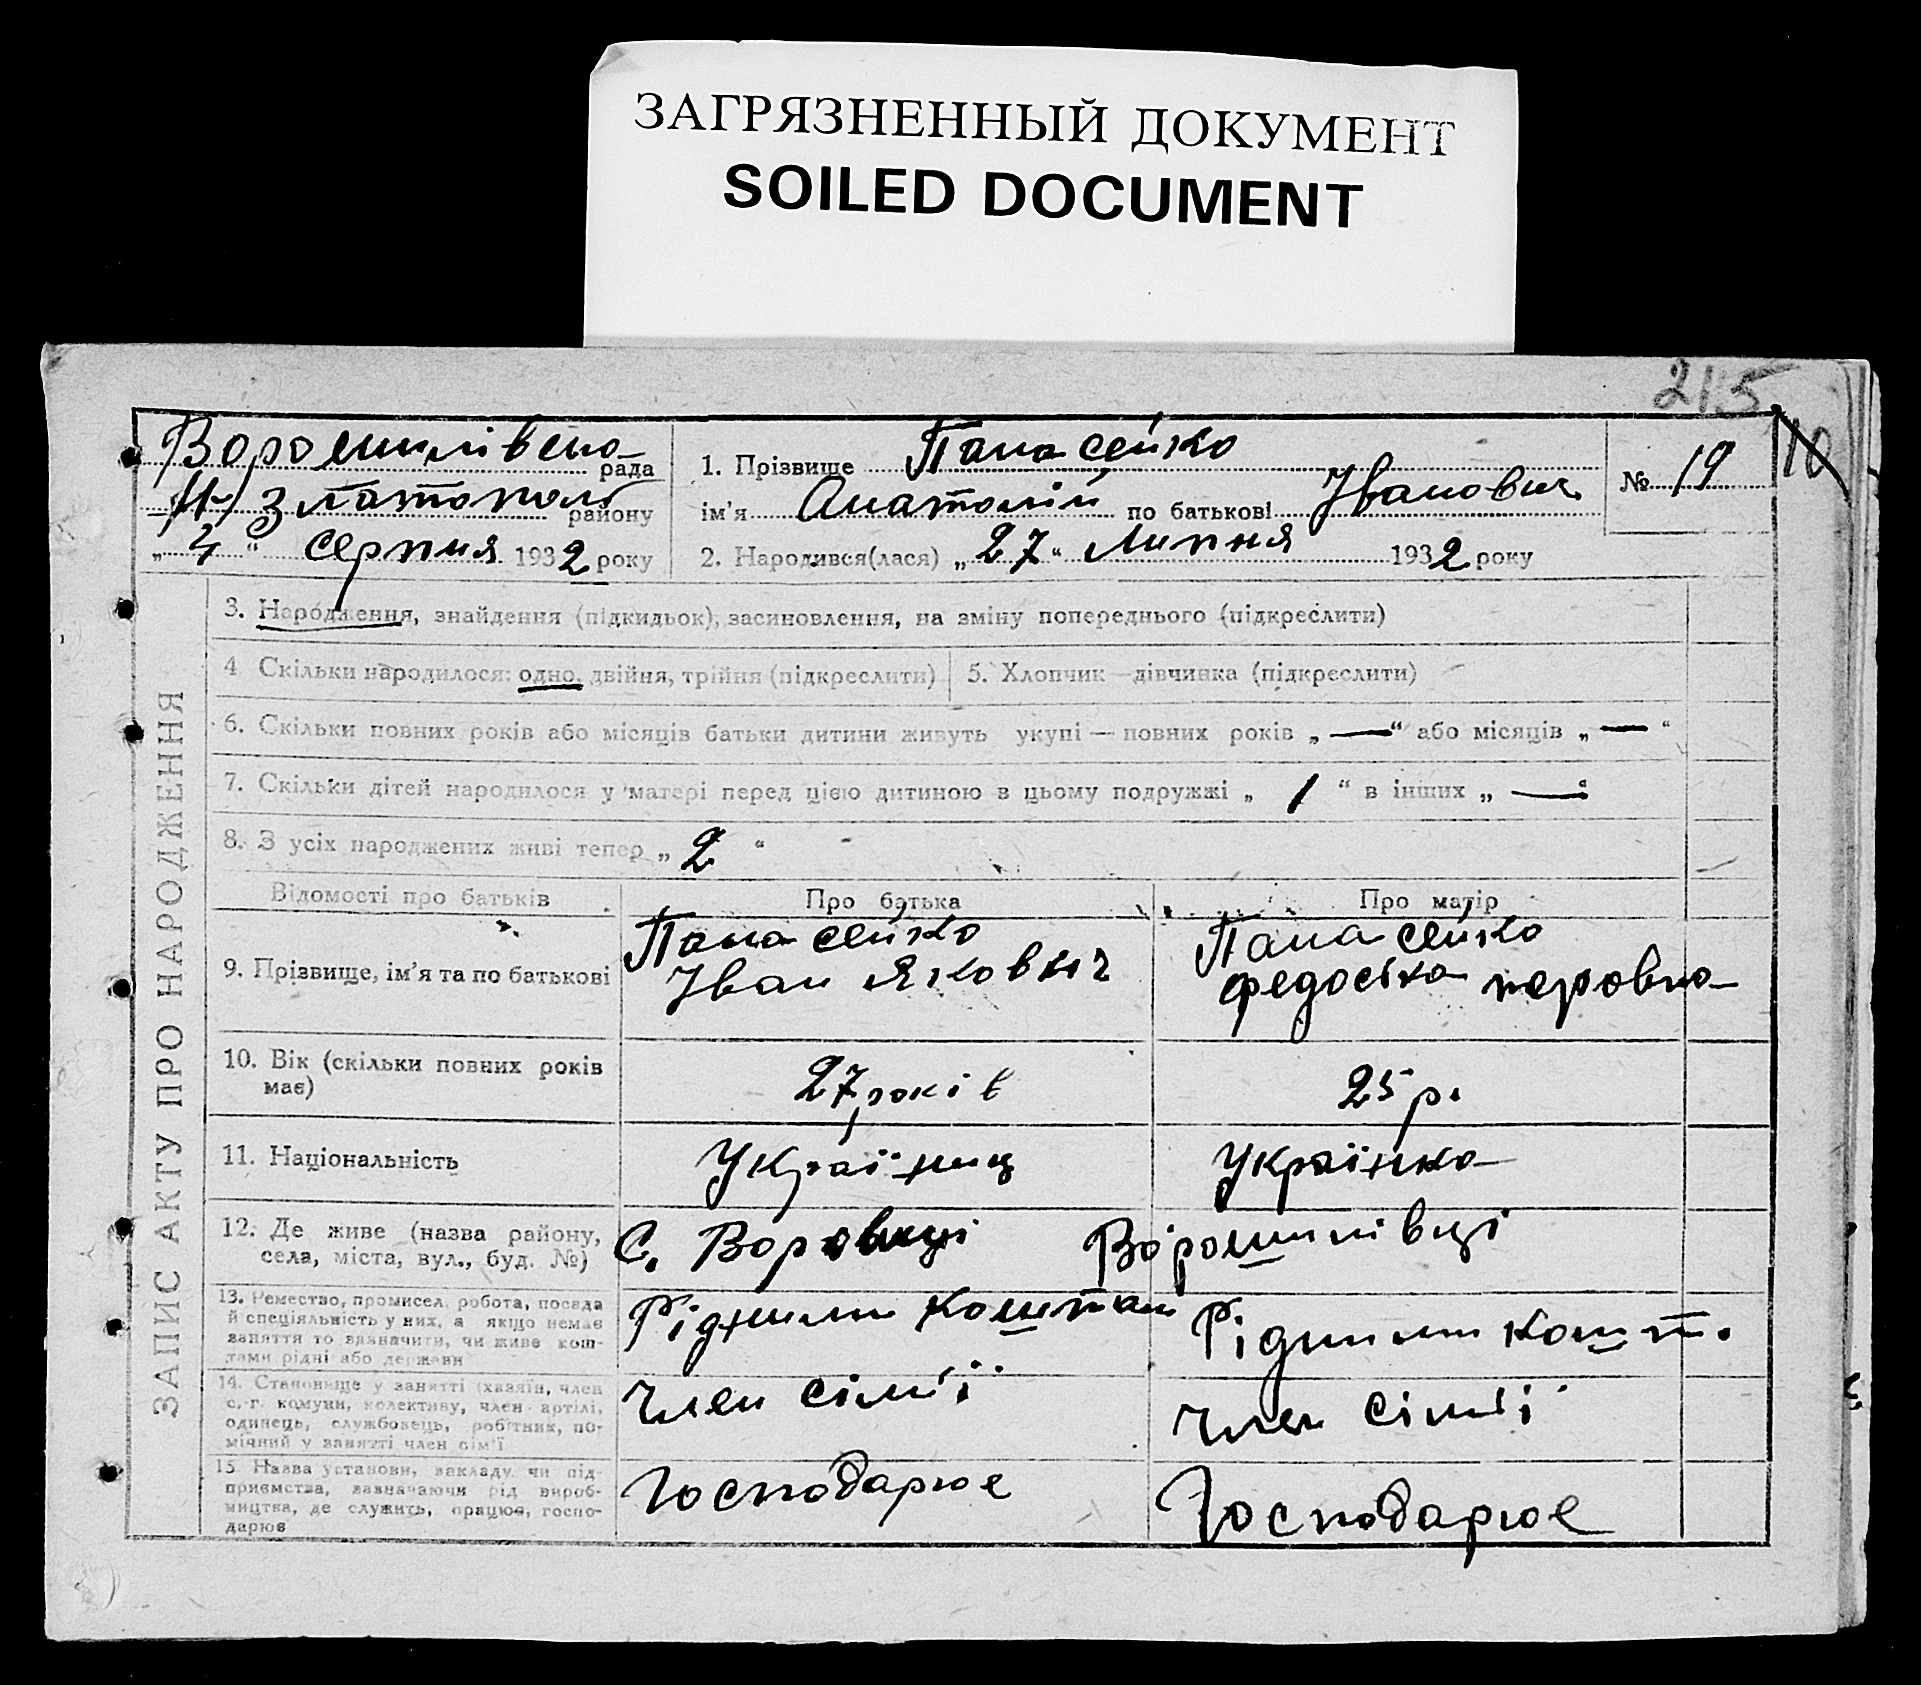 ЗАГРЯЗНЕННЫЙ ДОКУМЕНТ
SOILED DOCUMENT
215
Ворошилівська рада
Н/Златопольс району
„4“ Серпня 1932 року
1. Прізвище Панасейко
ім'я Анатолій по батькові Іванович
2. Народився(лася) „27“ Липня 1932 року
№ 19
10
ЗАПИС АКТУ ПРО НАРОДЖЕННЯ
3. Народження, знайдення (підкидьок), засиновлення, на зміну попереднього (підкреслити)
4 Скільки народилося: одно, двійня, трійня (підкреслити)
5. Хлопчик—дівчинка (підкреслити)
6. Скільки повних років або місяців батьки дитини живуть укупі — повних років „—“ або місяців „—“
7. Скільки дітей народилося у матері перед цією дитиною в цьому подружжі „1“ в інших „—“
8. З усіх народжених живі тепер „2“
Відомості про батьків
Про батька
Про матір
9. Прізвище, ім'я та по батькові
Панасейко
Іван Якович
Панасейко
Федосіка
10. Вік (скільки повних років
має)
27 років
25 р.
11. Національність
Українец
Українка
12. Де живе (назва району,
села, міста, вул., буд. №)
С. Ворошилівці
13. Ремество, промисел, робота, посада
й спеціяльність у них, а якщо немає
заняття то зазначити, чи живе кош-
тами рідні або держави
Рідними коштам
Рідними кошт.
14. Становище у занятті (хазяїн, член
с.-г. комуни, колективу, член артілі,
одинець, службовець, робітник, по-
мічний у занятті член сім'ї
Член сім'ї
Член сім'ї
15. Назва установи, закладу чи під-
приємства, зазначаючи рід вироб-
ництва, де служить, працює, госпо-
дарює
Господарює
Господарює